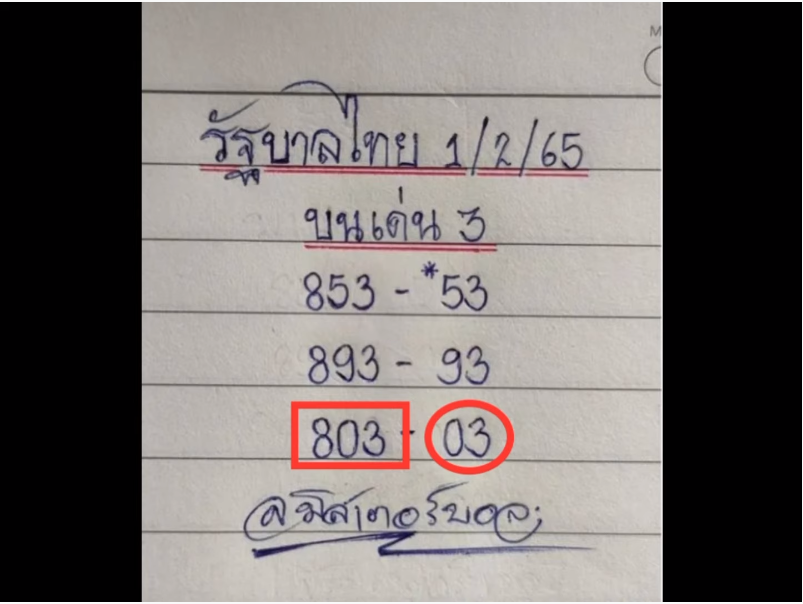 รัฐบาลไทย 1/2/65
บนเด่น 3
853 - *53
893 - 93
803 - 03
@มิสเตอร์บอล